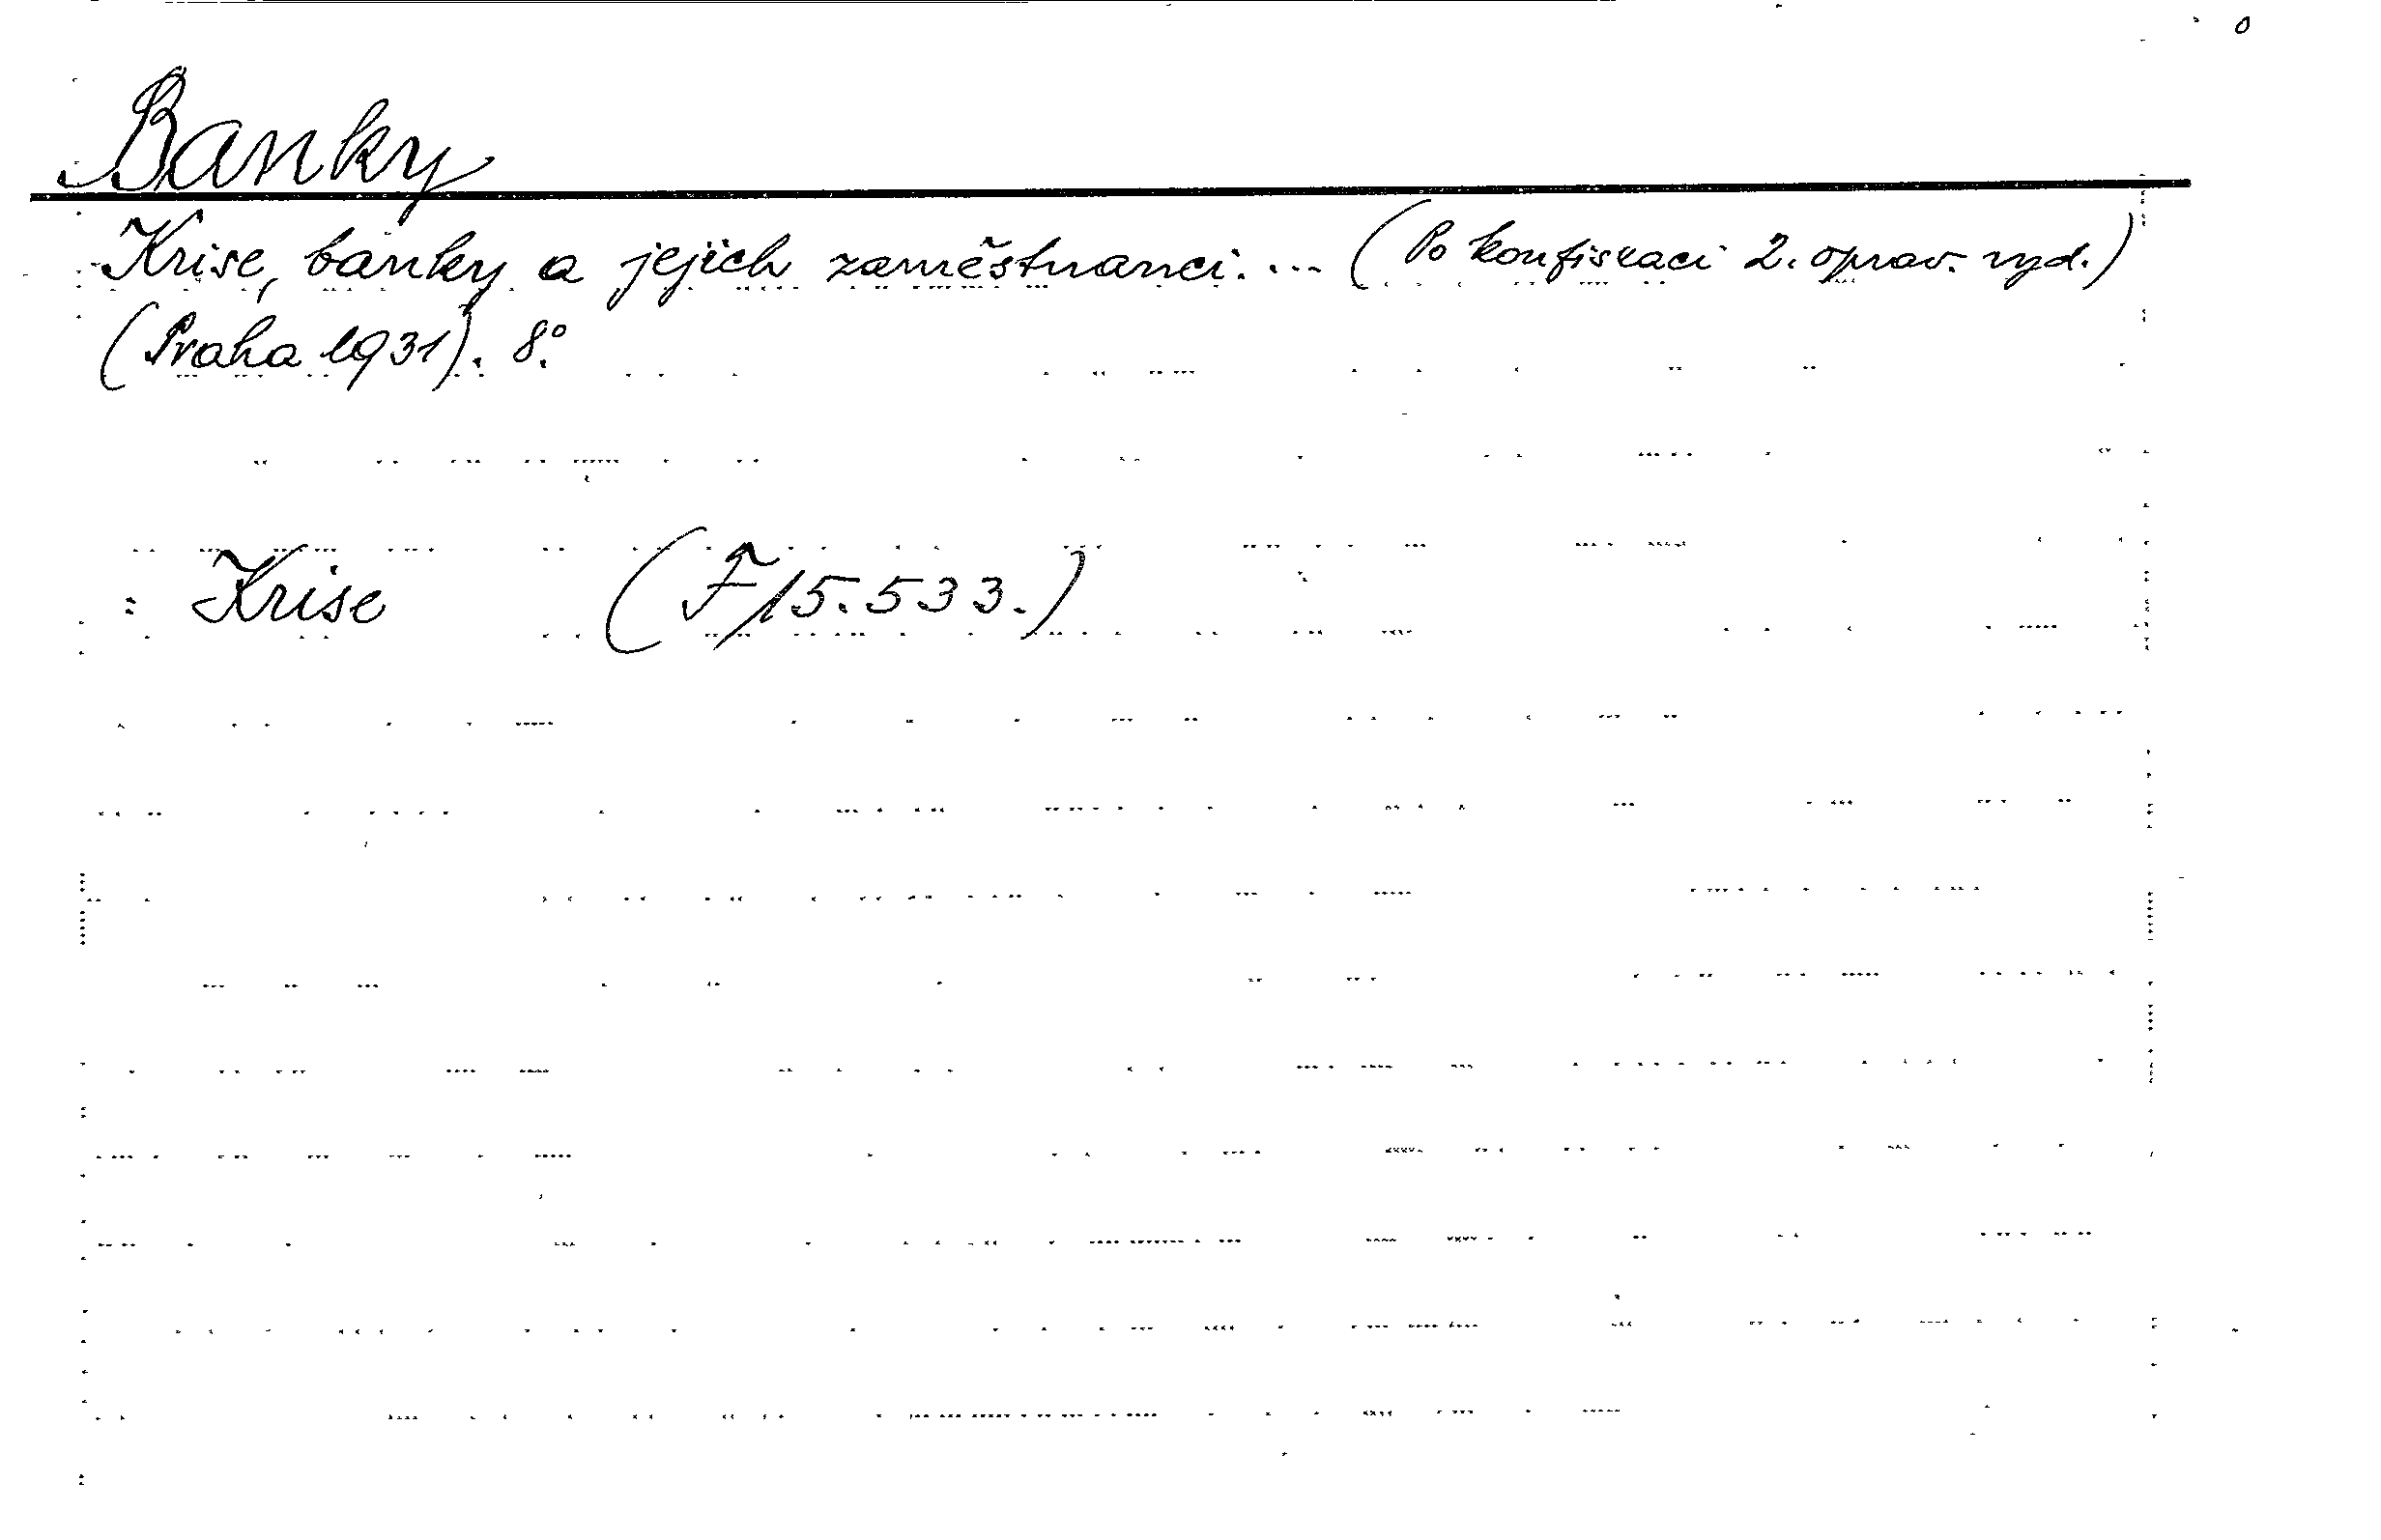 Banky
Krise, banky a jejich zaměstnanci. ... (Po konfiskaci 2. oprav. vyd.)
(Praha 1931). 8°.
: Krise (F 15.533.)